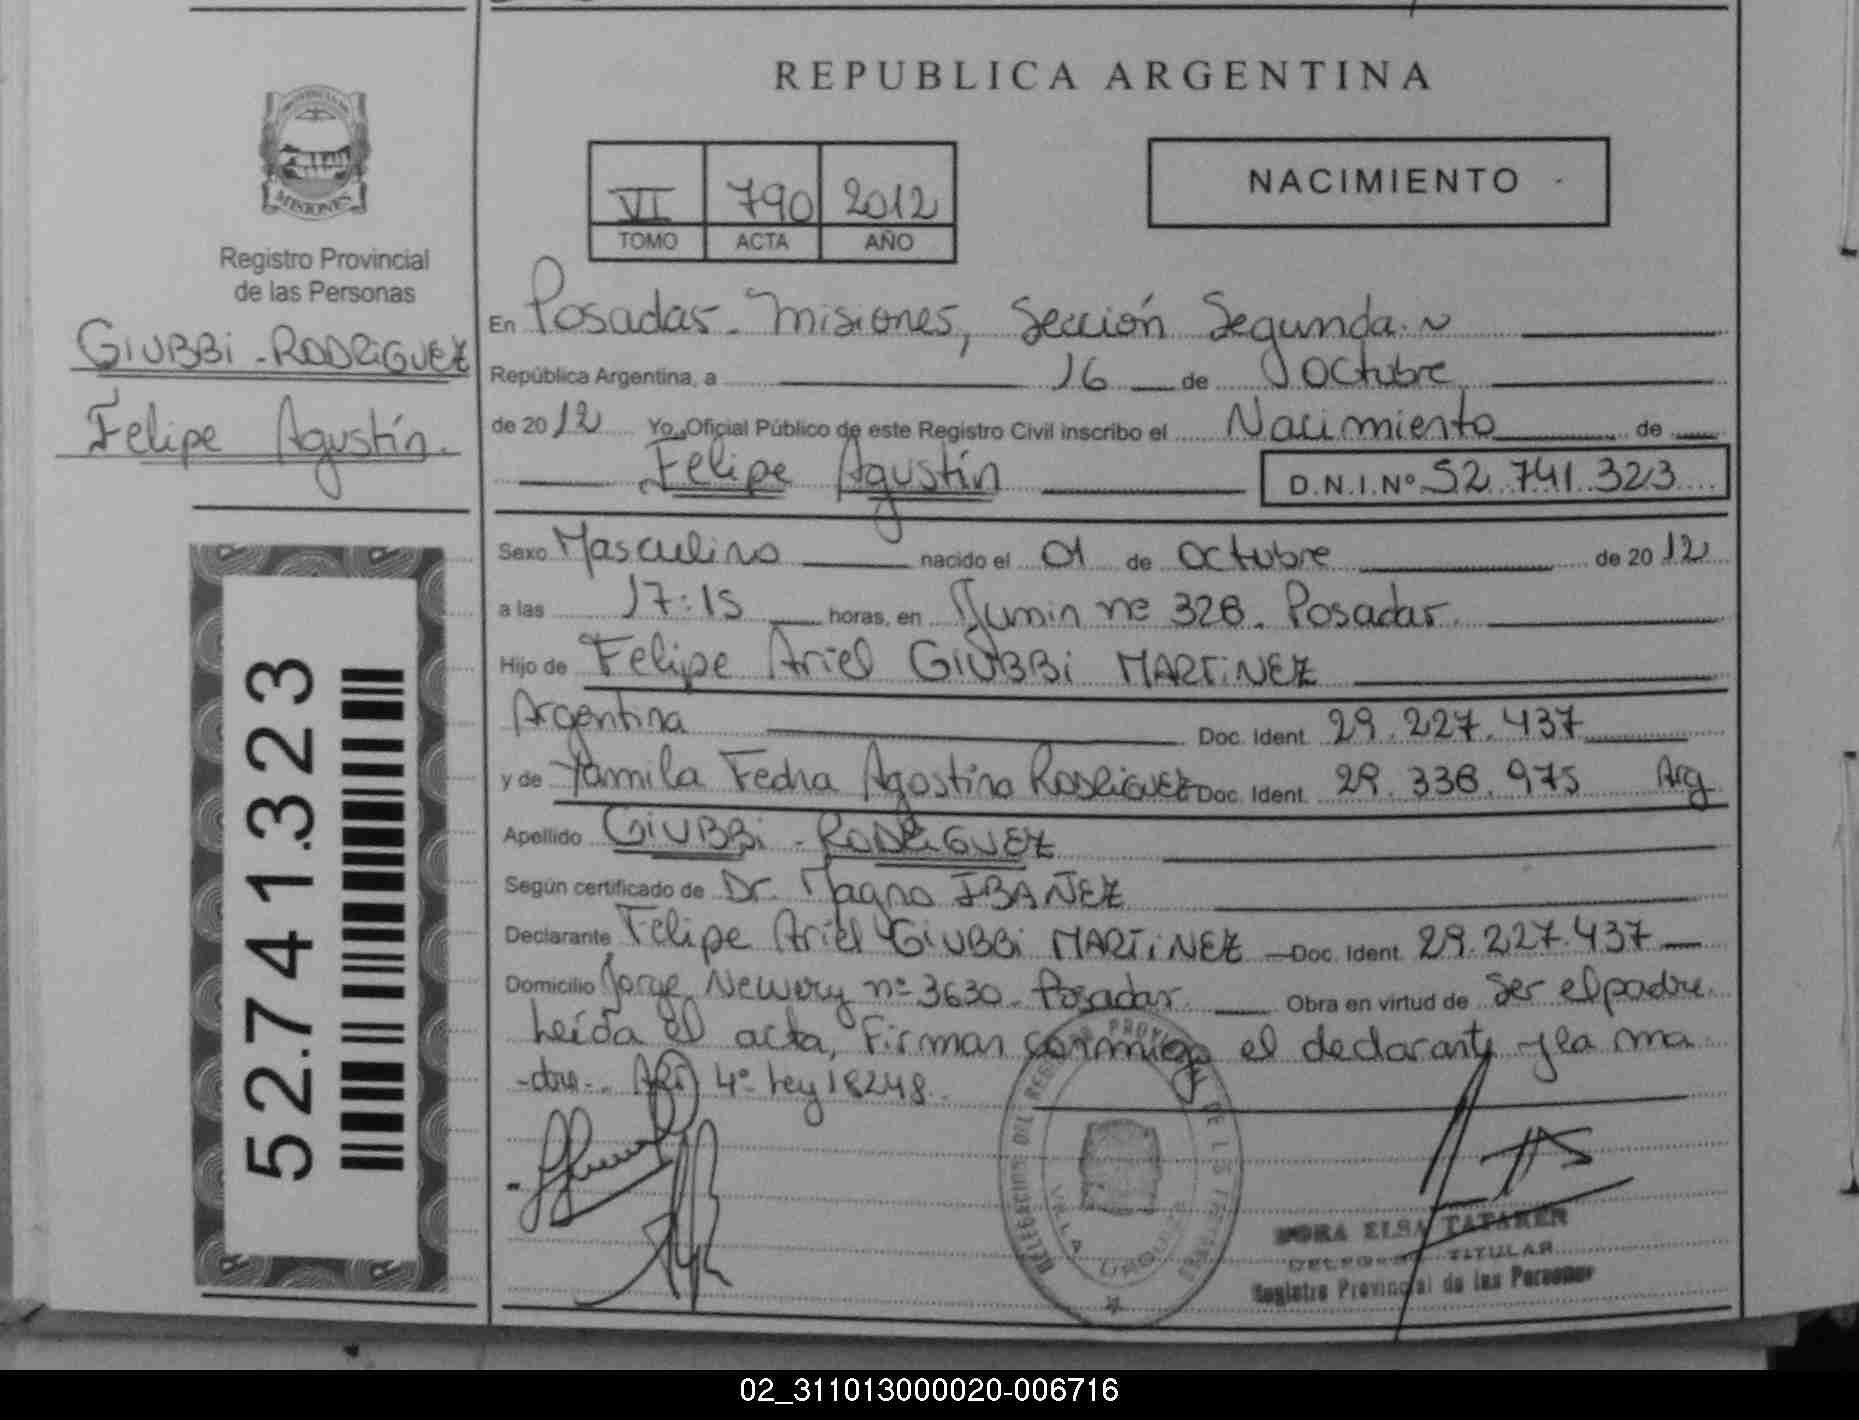 REPUBLICA ARGENTINA
MISIONES
Registro Provincial
de las Personas
GIUBBI - RODRIGUEZ
Felipe Agustín.
52.741.323
VI 790 2012
TOMO ACTA AÑO
NACIMIENTO
En Posadas - Misiones, Sección Segunda
República Argentina, a 16 de Octubre
de 2012 Yo, Oficial Público de este Registro Civil inscribo el Nacimiento de
Felipe Agustín D.N.I.Nº 52.741.323
Sexo Masculino nacido el 01 de Octubre de 2012
a las 17:15 horas, en Junin nº 328. Posadas.
Hijo de Felipe Ariel GIUBBI MARTINEZ
Argentina Doc. Ident. 29.227.437
y de Yamila Fedra Agostina RODRIGUEZ Doc. Ident. 29.338.975 Arg
Apellido GIUBBI - RODRIGUEZ
Según certificado de Dr. Magno IBAÑEZ
Declarante Felipe Ariel GIUBBI MARTINEZ Doc. Ident. 29.227.437
Domicilio Jorge Newery nº 3630 - Posadas. Obra en virtud de ser el padre.
Leída el acta, firman conmigo el declarante y la ma
-dre-. 4º Ley 18248.
DORA ELSA TATAREN
TITULAR
Registro Provincial de las Personas
02_311013000020-006716